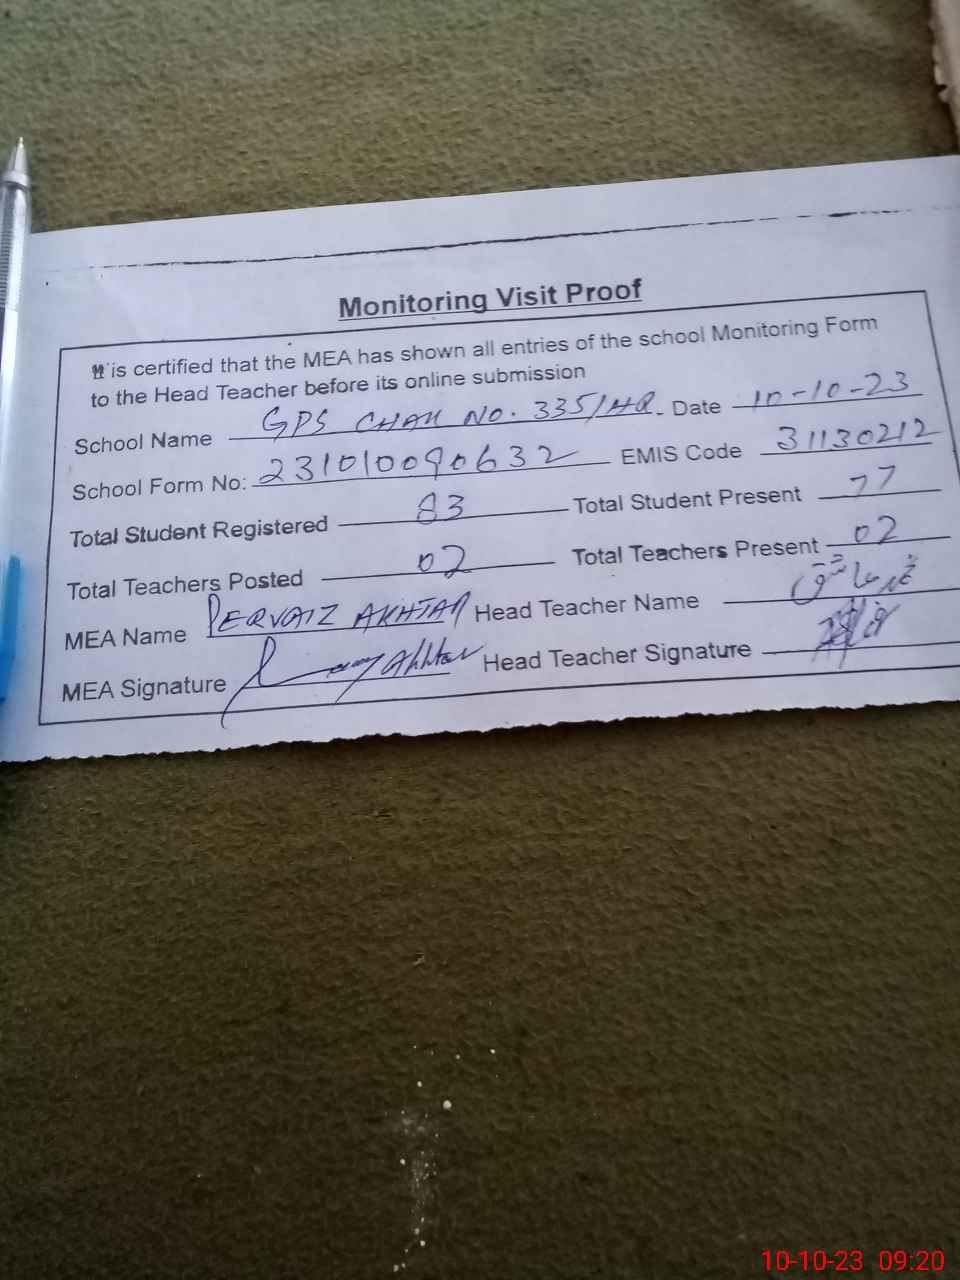 Monitoring Visit Proof
It is certified that the MEA has shown all entries of the school Monitoring Form
to the Head Teacher before its online submission
School Name GPS CHAK NO. 335/HR. Date 10-10-23
School Form No: 231010090632 EMIS Code 31130212
Total Student Registered 83 Total Student Present 77
Total Teachers Posted 02 Total Teachers Present 02
MEA Name PERVAIZ AKHTAR Head Teacher Name
MEA Signature Akhtar Head Teacher Signature
10-10-23 09:20